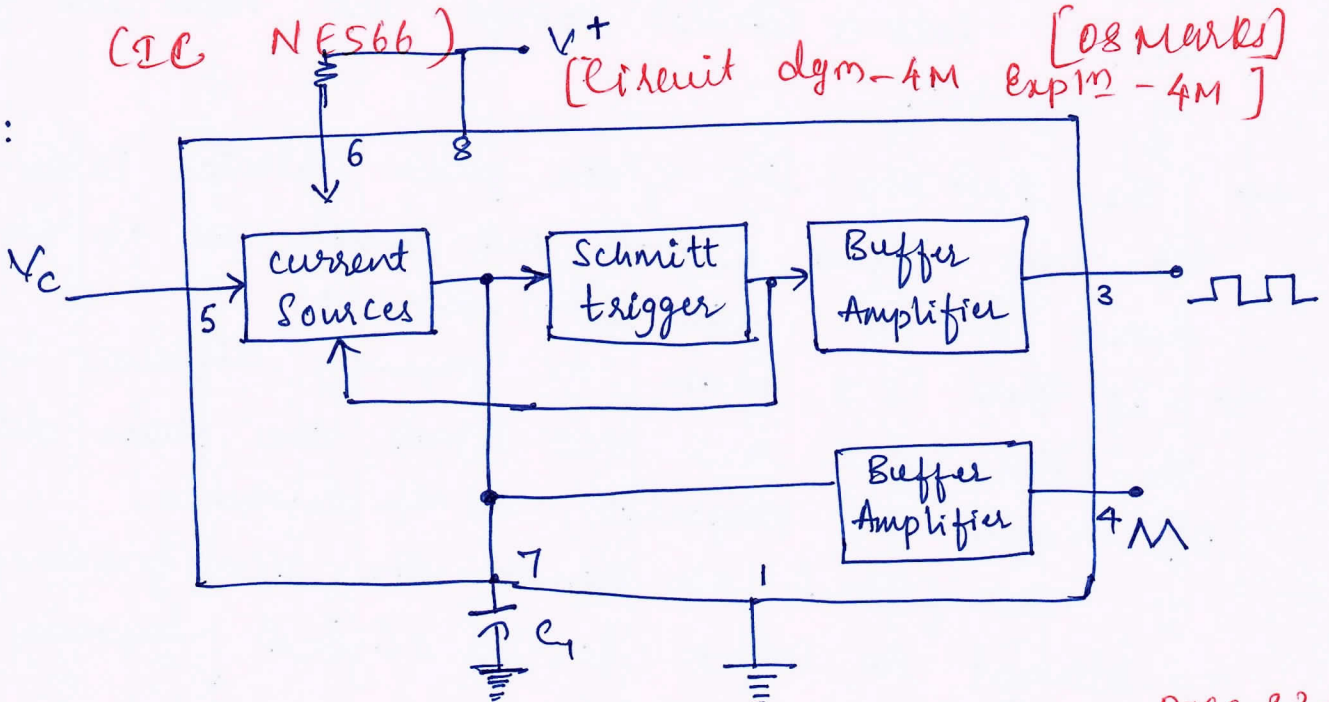 (IC NE566)
V+
[08 Marks]
[Circuit dgm-4M Expln - 4M]
:
6
8
Vc
5
current
Sources
Schmitt
trigger
Buffer
Amplifier
3
Buffer
Amplifier
4
7
1
C1